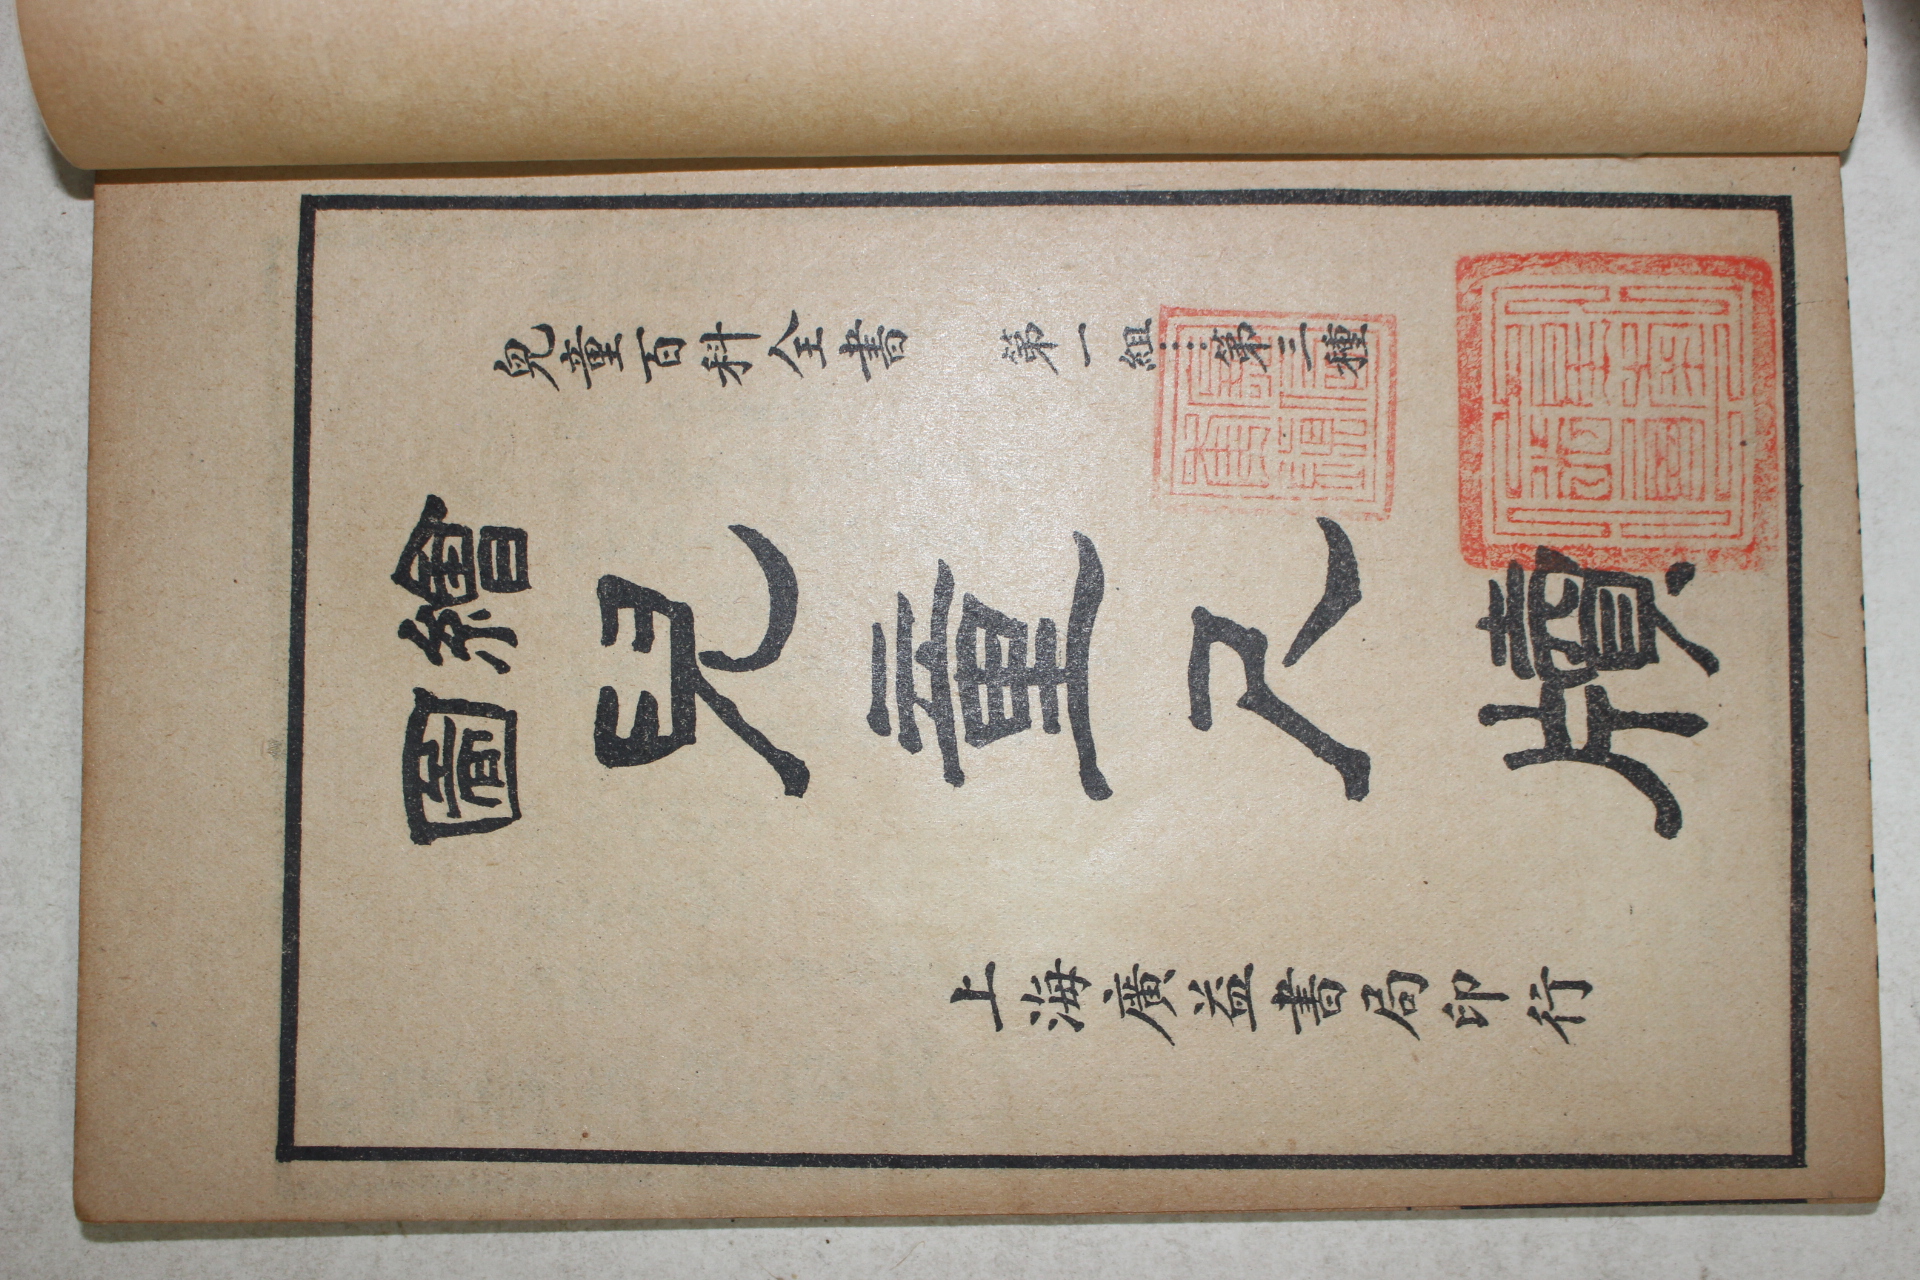 兒童百科全書　第一組……第三種
繪圖
兒童尺牘
上海廣益書局印行